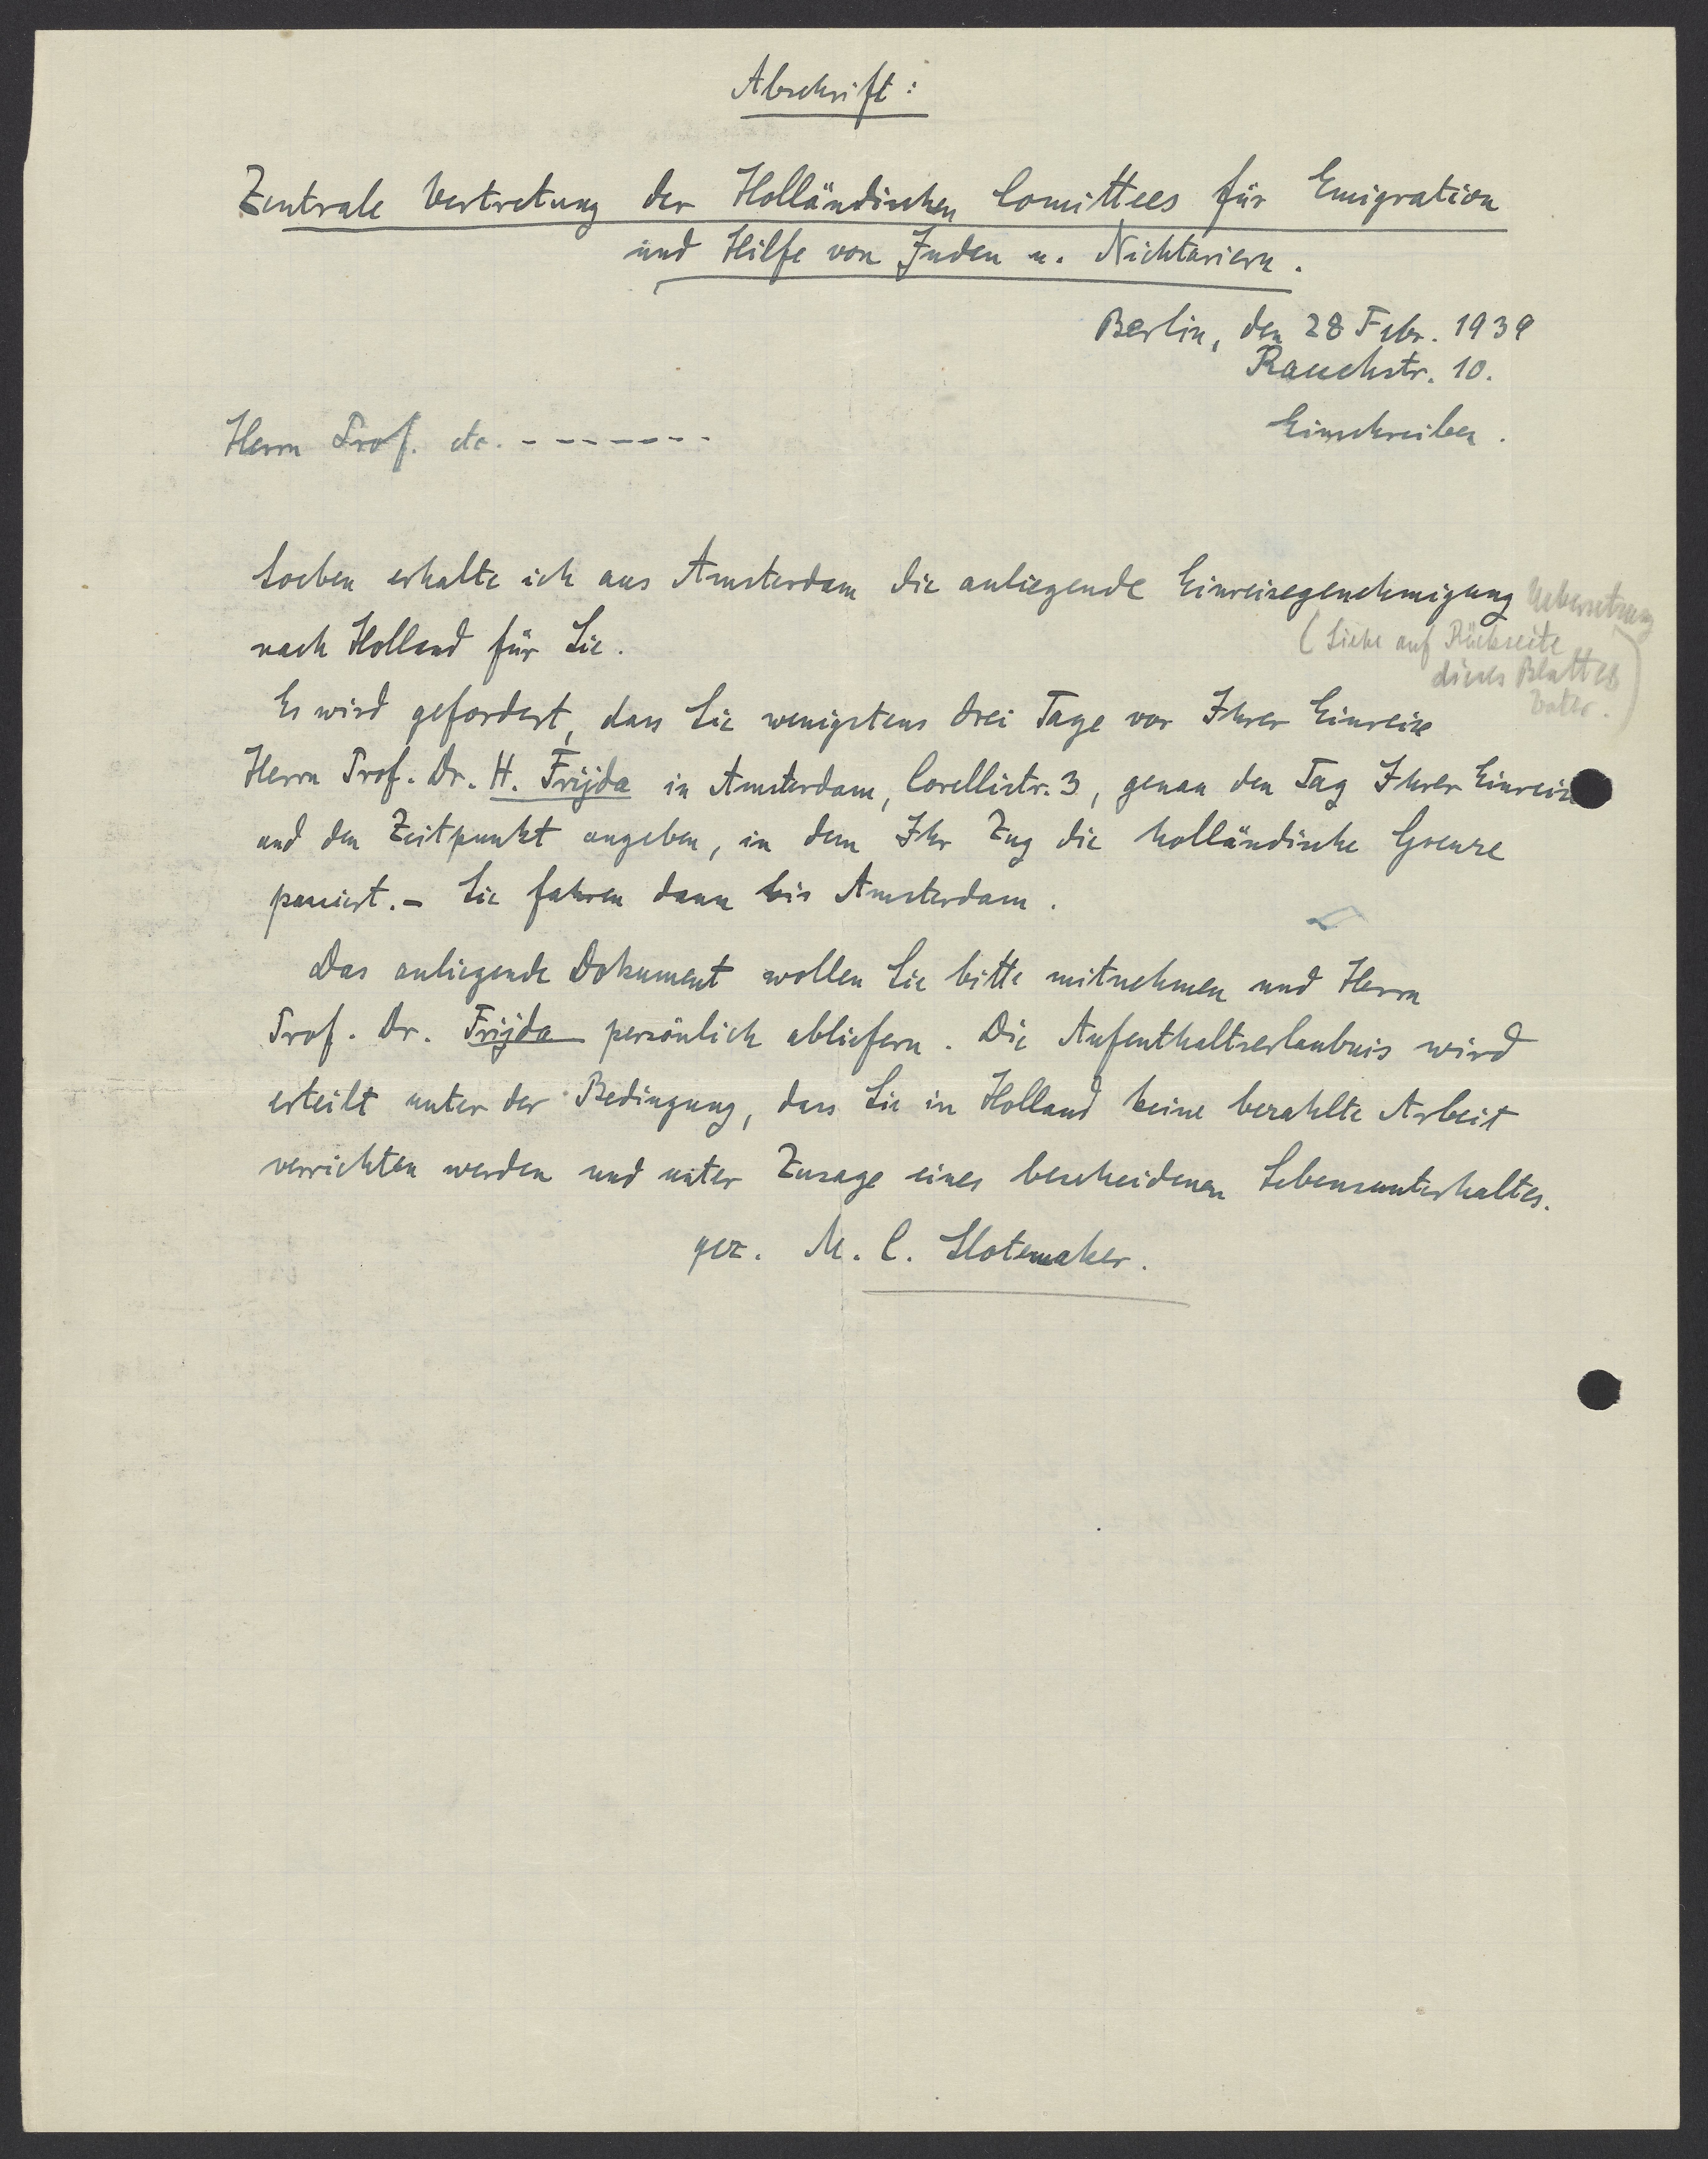 Abschrift:
Zentrale Vertretung der Holländischen Comittees für Emigration
und Hilfe von Juden u. Nichtariern.
Berlin, den 28 Febr. 1939
Rauchstr. 10.
Einschreiben.
Herrn Prof. etc. - - - - - - -
Soeben erhalte ich aus Amsterdam die anliegende Einreisegenehmigung
nach Holland für Sie.
Uebersetzung
(Siehe auf Rückseite
dieses Blattes
Es wird gefordert, dass Sie wenigstens drei Tage vor Ihrer Einreise
Herrn Prof. Dr. H. Frijda in Amsterdam, Corellistr. 3, genau den Tag Ihrer Einreise
und den Zeitpunkt angeben, in dem Ihr Zug die holländische Grenze
passiert. - Sie fahren dann bis Amsterdam.
Das anliegende Dokument wollen Sie bitte mitnehmen und Herrn
Prof. Dr. Frijda persönlich abliefern. Die Aufenthaltserlaubnis wird
erteilt unter der Bedingung, dass Sie in Holland keine bezahlte Arbeit
verrichten werden und unter Zusage eines bescheidenen Lebensunterhaltes.
gez. M. C. Slotemaker.